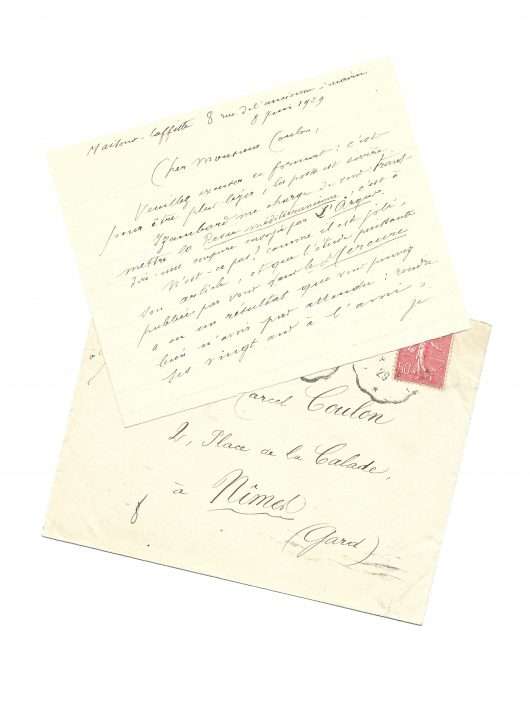 Maisons-Laffitte 8 rue de l'ancienne mairie
8 Juin 1929
Cher Monsieur Coulon,
Veuillez excuser ce format; c'est
pour être plus léger; les postes est
Izambard me charge de vous trans-
mettre la Revue méditerranéenne, c'est à
dire une coupure envoyée par L'Argus.
N'est-ce pas? comme il est joli,
son article, et que l'étude puissante
publiée par vous dans le Mercure
a eu un résultat que vous pouviez
bien n'avoir pas attendu: rendre
ses vingt ans à l'ami,
je
Marcel Coulon
2, Place de la Calade,
à Nîmes
(Gard)
50
29